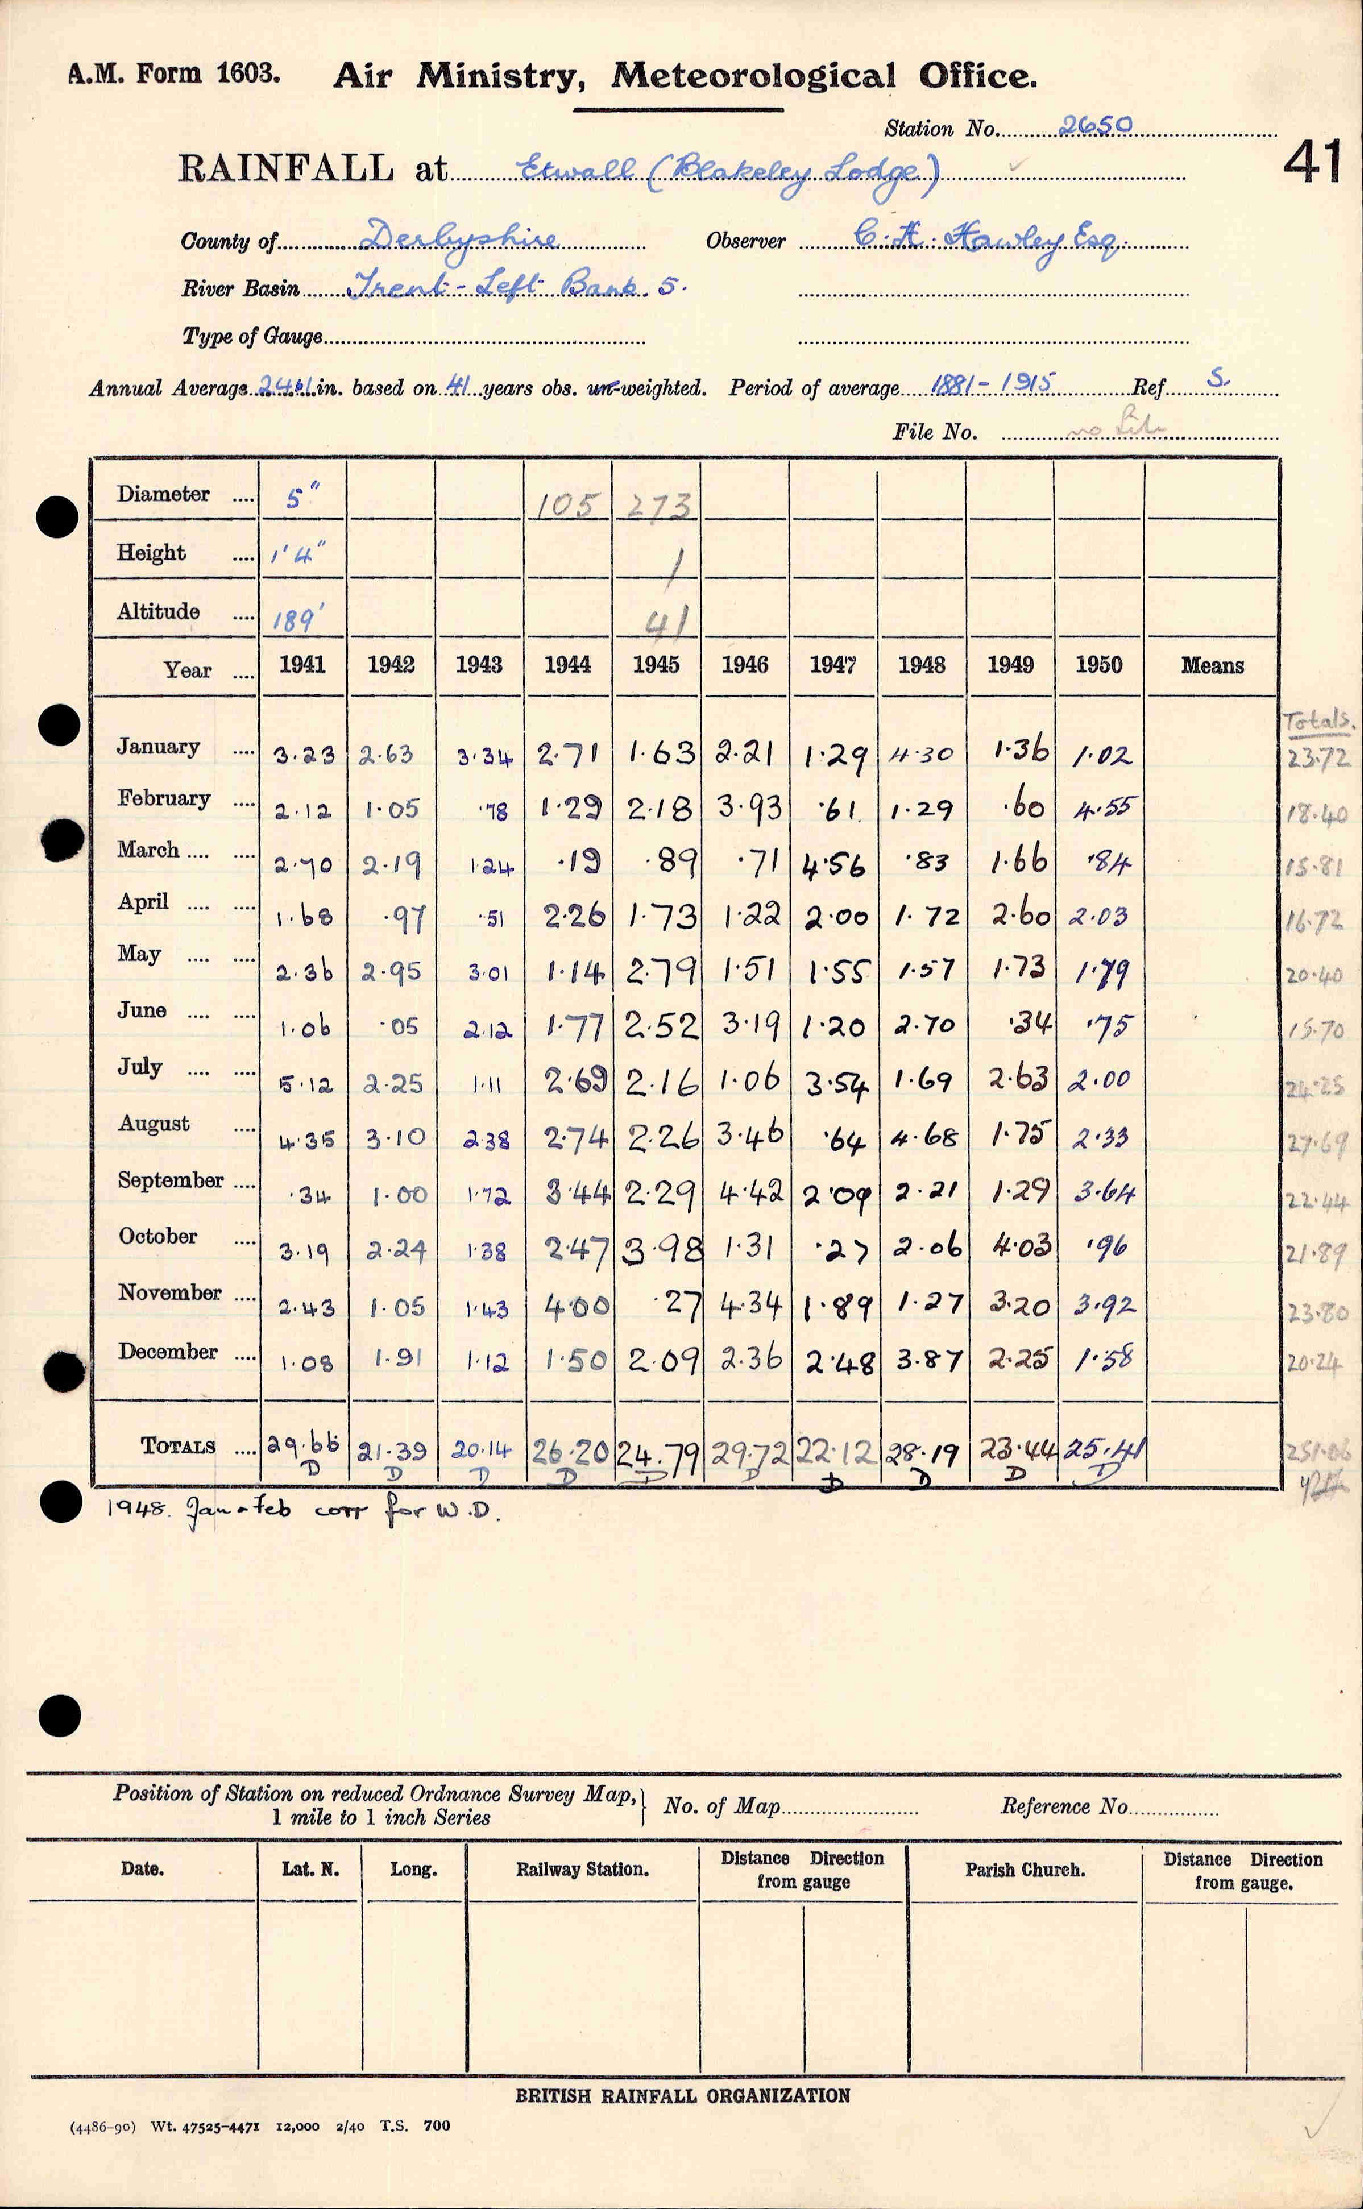 A.M. Form 1603. Air Ministry, Meteorological Office.
Station No. 2650
41
RAINFALL at Etwall (Blakeley Lodge)
County of Derbyshire Observer C. H. Hawley Esq.
River Basin Trent - Left Bank. 5.
Type of Gauge
Annual Average in. based on 41 years obs. un-weighted. Period of average 1881-1915 Ref S.
File No. no
Diameter .... 5" 105 273
Height .... 1'4" 1
Altitude .... 189' 41
Year .... 1941 1942 1943 1944 1945 1946 1947 1948 1949 1950 Means
Totals.
January .... 3.23 2.63 3.34 2.71 1.63 2.21 1.29 4.30 1.36 1.02 23.72
February .... 2.12 1.05 .78 1.29 2.18 3.93 .61 1.29 .60 4.55 18.40
March .... .... 2.70 2.19 1.24 .19 .89 .71 4.56 .83 1.66 .84 15.81
April .... .... 1.68 .97 .51 2.26 1.73 1.22 2.00 1.72 2.60 2.03 16.72
May .... .... 2.36 2.95 3.01 1.14 2.79 1.51 1.55 1.57 1.73 1.79 20.40
June .... .... 1.06 .05 2.12 1.77 2.52 3.19 1.20 2.70 .34 .75 15.70
July .... .... 5.12 2.25 1.11 2.69 2.16 1.06 3.54 1.69 2.63 2.00 24.25
August .... 4.35 3.10 2.38 2.74 2.26 3.46 .64 4.68 1.75 2.33 27.69
September .... .34 1.00 1.72 3.44 2.29 4.42 2.09 2.21 1.29 3.64 22.44
October .... 3.19 2.24 1.38 2.47 3.98 1.31 .27 2.06 4.03 .96 21.89
November .... 2.43 1.05 1.43 4.00 .27 4.34 1.89 1.27 3.20 3.92 23.80
December .... 1.08 1.91 1.12 1.50 2.09 2.36 2.48 3.87 2.25 1.58 20.24
TOTALS .... 29.66 21.39 20.14 26.20 24.79 29.72 22.12 28.19 23.44 25.41 251.06
D D D D D D D D D D
1948. Jan & Feb corr for W.D.
Position of Station on reduced Ordnance Survey Map, 1 mile to 1 inch Series } No. of Map Reference No.
Date. Lat. N. Long. Railway Station. Distance Direction from gauge Parish Church. Distance Direction from gauge.
BRITISH RAINFALL ORGANIZATION
(4486-90) Wt. 47525-4471 12,000 2/40 T.S. 700